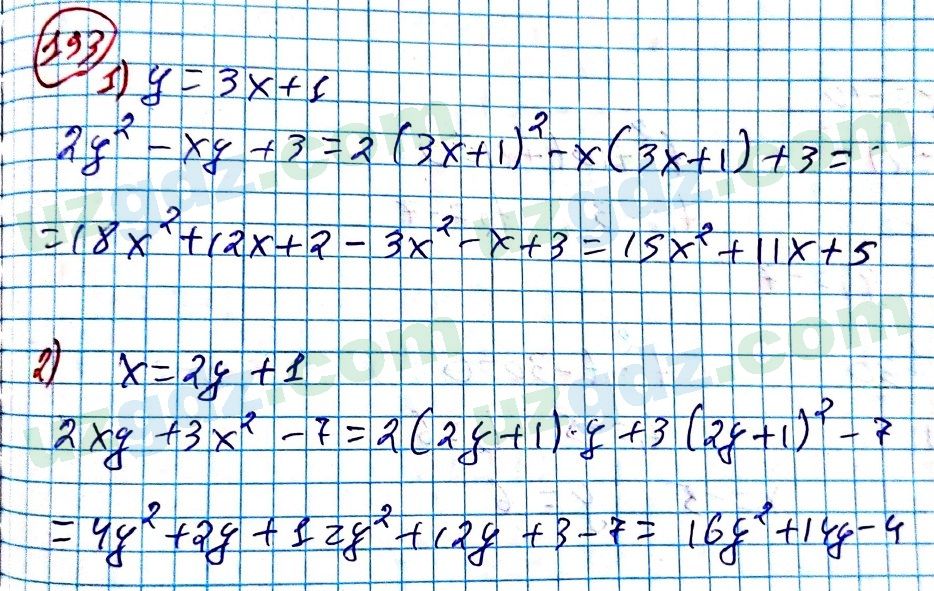 193
1) y = 3x + 1
2y² - xy + 3 = 2(3x+1)² - x(3x+1) + 3 =
= 18x² + 12x + 2 - 3x² - x + 3 = 15x² + 11x + 5
2) x = 2y + 1
2xy + 3x² - 7 = 2(2y+1)·y + 3(2y+1)² - 7
= 4y² + 2y + 12y² + 12y + 3 - 7 = 16y² + 14y - 4
uzgdz.com
uzgdz.com
uzgdz.com
uzgdz.com